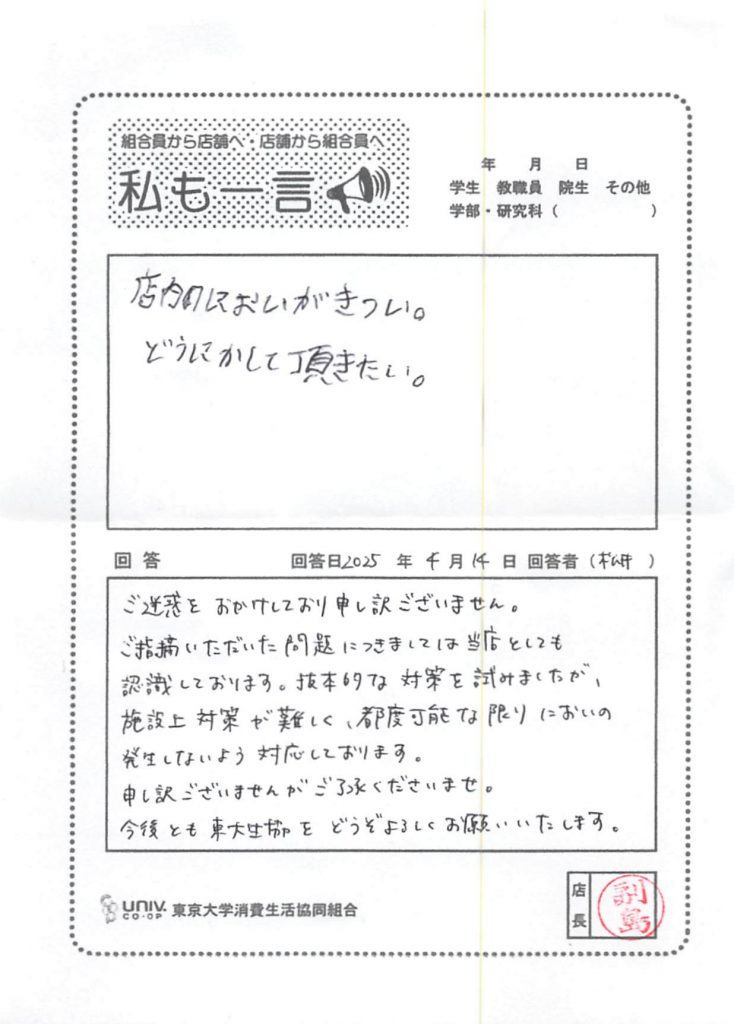 組合員から店舗へ・店舗から組合員へ
私も一言
年 月 日
学生 教職員 院生 その他
学部・研究科（ ）
店内のにおいがきつい。
どうにかして頂きたい。
回答 回答日2025 年 4 月 14 日 回答者（ ）
ご迷惑を おかけしており申し訳ございません。
ご指摘いただいた問題につきましては当店としても
認識しております。抜本的な対策を試みましたが、
施設上対策が難しく、都度可能な限りにおいの
発生しないよう対応しております。
申し訳ございませんがご了承くださいませ。
今後とも東大生協をどうぞよろしくお願いいたします。
UNIV. CO-OP 東京大学消費生活協同組合
店長
副島